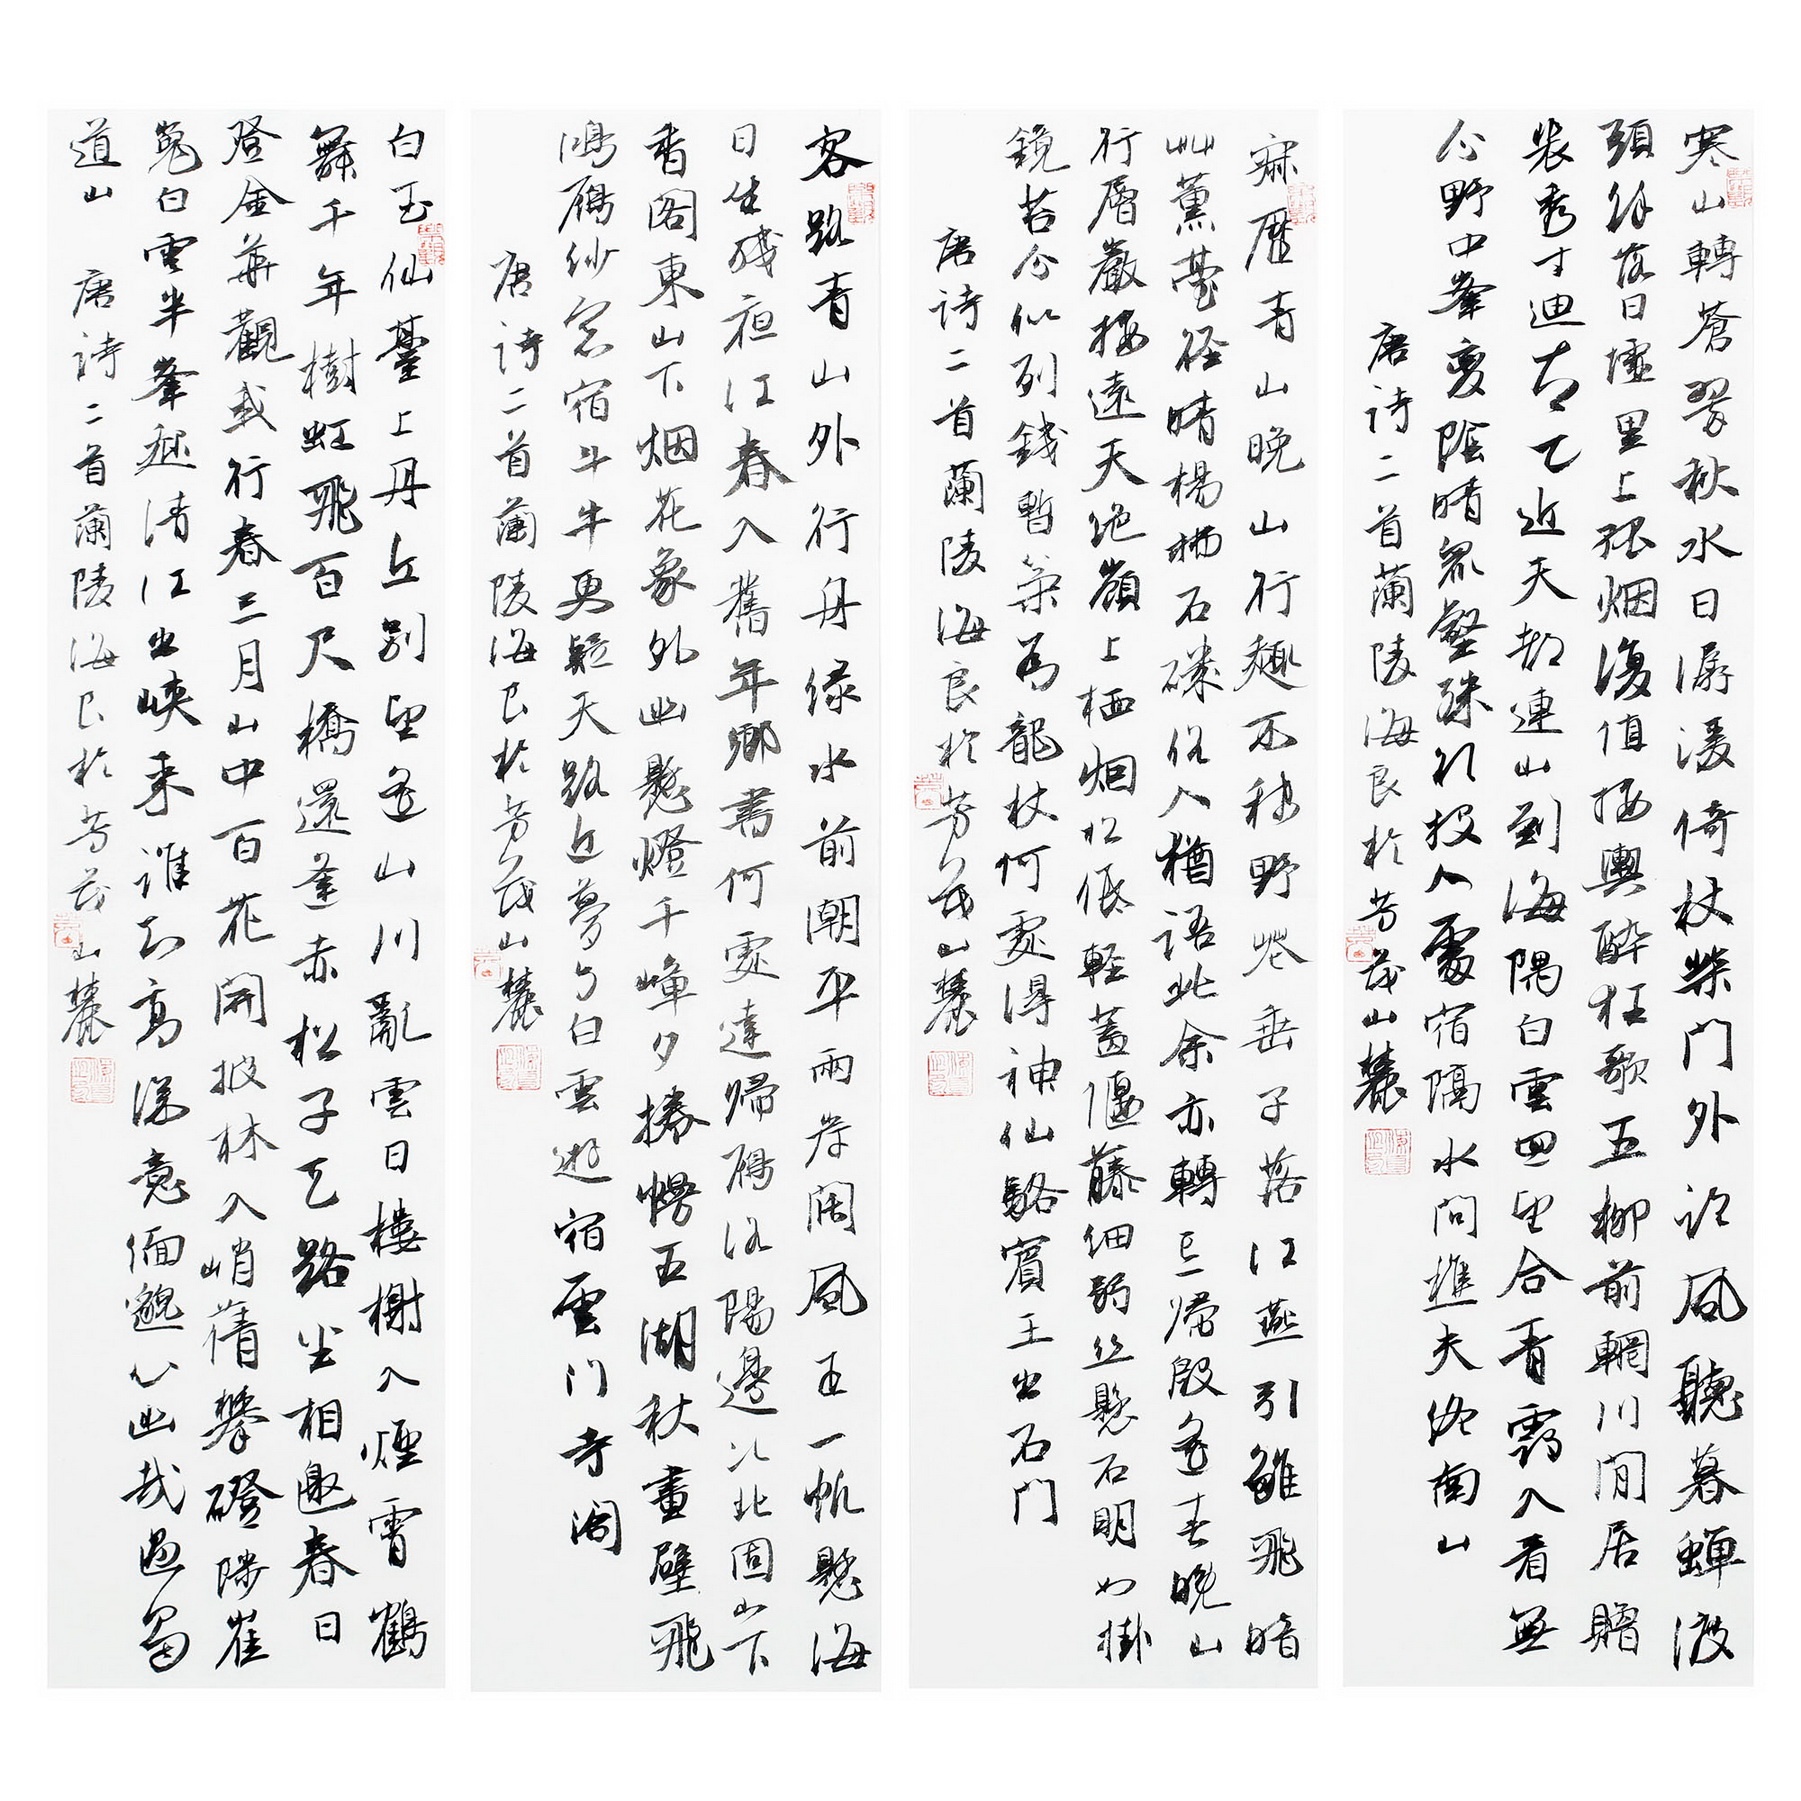 寒山轉蒼翠秋水日潺湲倚杖柴門外臨風聽暮蟬渡
頭餘落日墟里上孤烟復值接輿醉狂歌五柳前輞川閒居贈
裴秀才迪太乙近天都連山到海隅白雲迴望合青靄入看無
分野中峯變陰晴衆壑殊欲投人處宿隔水問樵夫終南山
唐詩二首蘭陵海良於芳茂山麓
寂歷青山晚山行趣不稀野花垂子落江燕引雛飛暗
艸薰苔徑晴楊拂石磯俗人猶語此余亦轉忘歸殷遙春晚山
行層巖接遠天絕嶺上栖烟松低輕蓋偃藤細弱絲懸石明如掛
鏡苔分似列錢暫策為龍杖何處得神仙駱賓王出石門
唐詩二首蘭陵海良於芳茂山麓
客路青山外行舟綠水前潮平兩岸闊風正一帆懸海
日生殘夜江春入舊年鄉書何處達歸雁洛陽邊次北固山下
香閣東山下烟花象外幽懸燈千嶂夕捲幔五湖秋畫壁飛
鴻雁紗窗宿斗牛更疑天路近夢與白雲遊宿雲門寺閣
唐詩二首蘭陵海良於芳茂山麓
白玉仙臺上丹丘別望遙山川亂雲日樓榭入煙霄鶴
舞千年樹虹飛百尺橋還逢赤松子天路坐相邀春日
登金華觀我行春三月山中百花開披林入峭蒨攀磴陟崔
嵬白雲半峯起清江出峽來誰知高深意緬邈心幽哉過蜀
道山 唐詩二首蘭陵海良於芳茂山麓